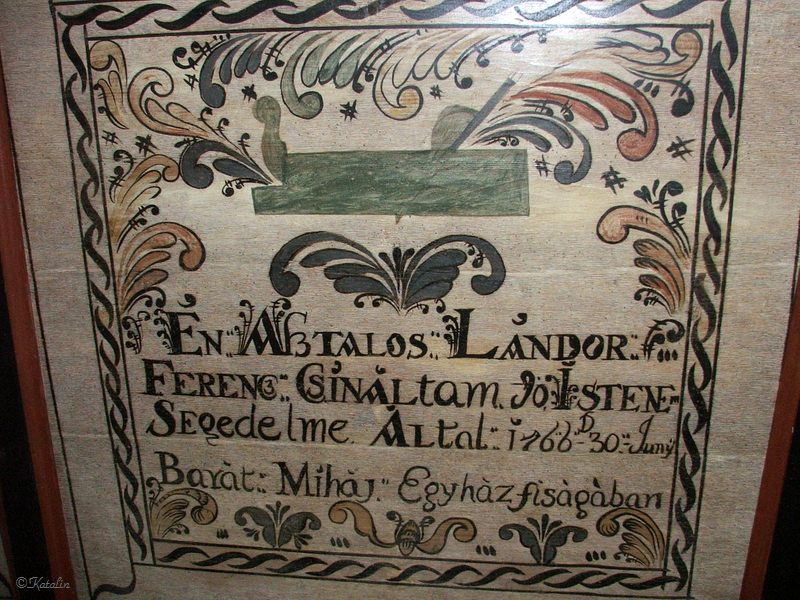 ÉN AſZTALOS LÁNDOR
FERENCZ CSINÁLtam JÓ IſTENEM
SEgedelme ÁLTal 1766 D 30 Juny
Baràt Mihàj Egyhàzfiságàban
©Katalin